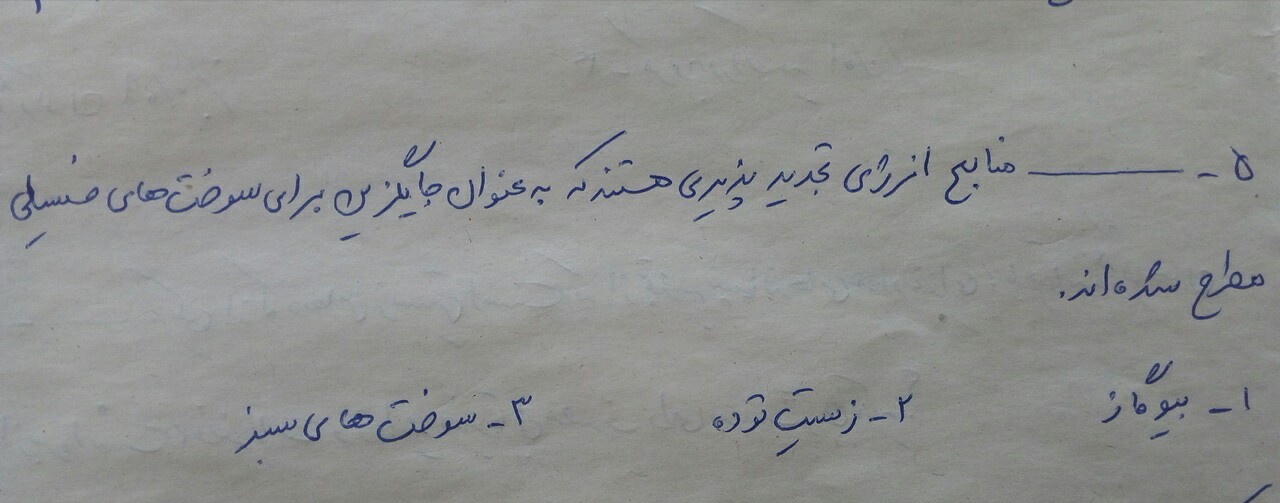 ۵- ــــــــ منابع انرژی تجدید پذیری هستند که به عنوان جایگزین برای سوخت‌های فسیلی
مطرح شده‌اند.
۱- بیوگاز ۲- زیست توده ۳- سوخت‌های سبز